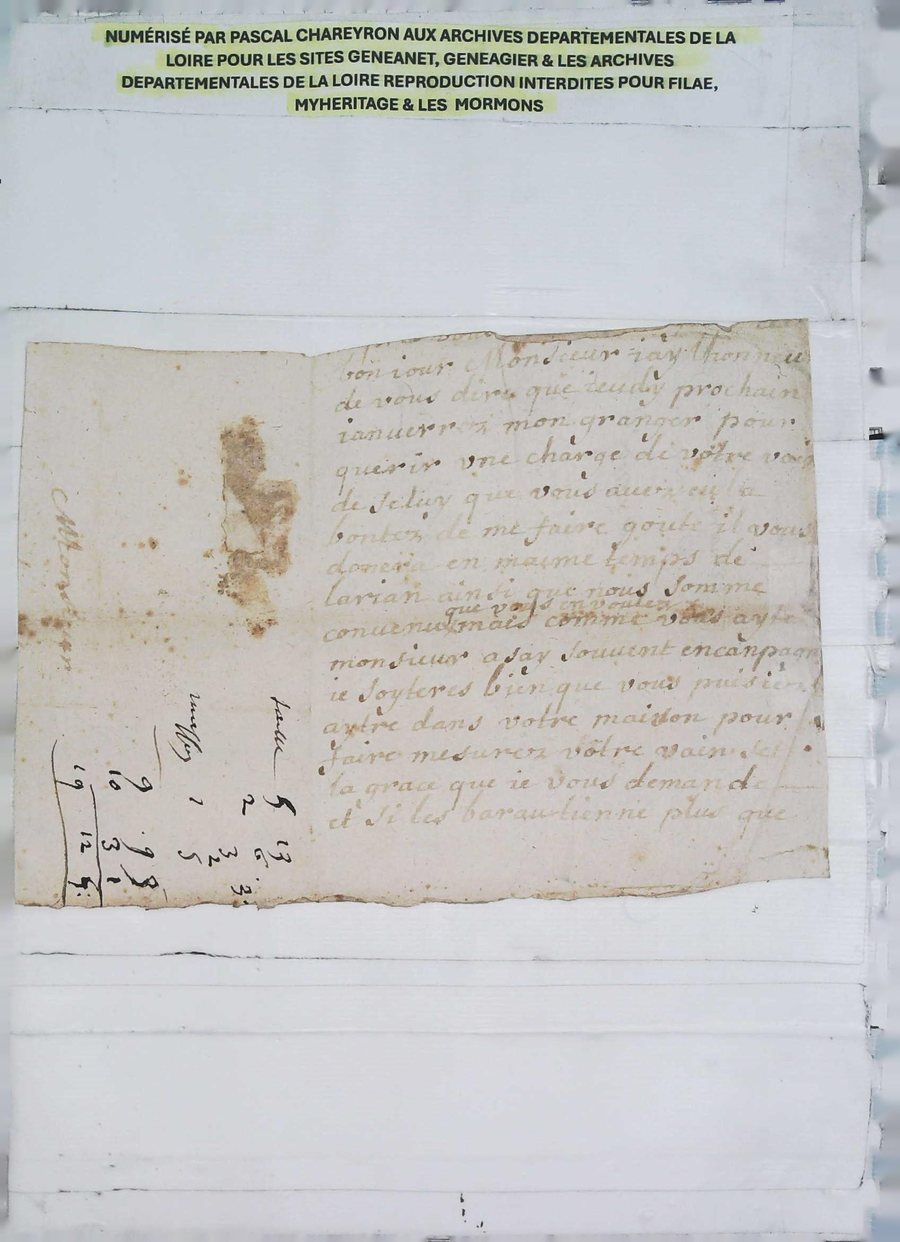 NUMÉRISÉ PAR PASCAL CHAREYRON AUX ARCHIVES DEPARTEMENTALES DE LA
LOIRE POUR LES SITES GENEANET, GENEAGIER & LES ARCHIVES
DEPARTEMENTALES DE LA LOIRE REPRODUCTION INTERDITES POUR FILAE,
MYHERITAGE & LES MORMONS
bon iour Monsieur iay lhonneu
de vous dire que ieudy prochain
ianverrez mon granger pour
querir vne charge de vôtre vain
de seluy que vous avez eu la
bontez de me faire goute il vous
donera en maime temps de
larian ainsi que nous somme
que vous en voulez
convenu mais comme vous aytes
monsieur asay souvent encanpagn
ie soyteres bien que vous puisiez
aytre dans votre maison pour
faire mesurez vôtre vain set
la grace que ie vous demande
et si les barau tienne plus que
Monsieur
9 9 8
10 3 1
19 12 9